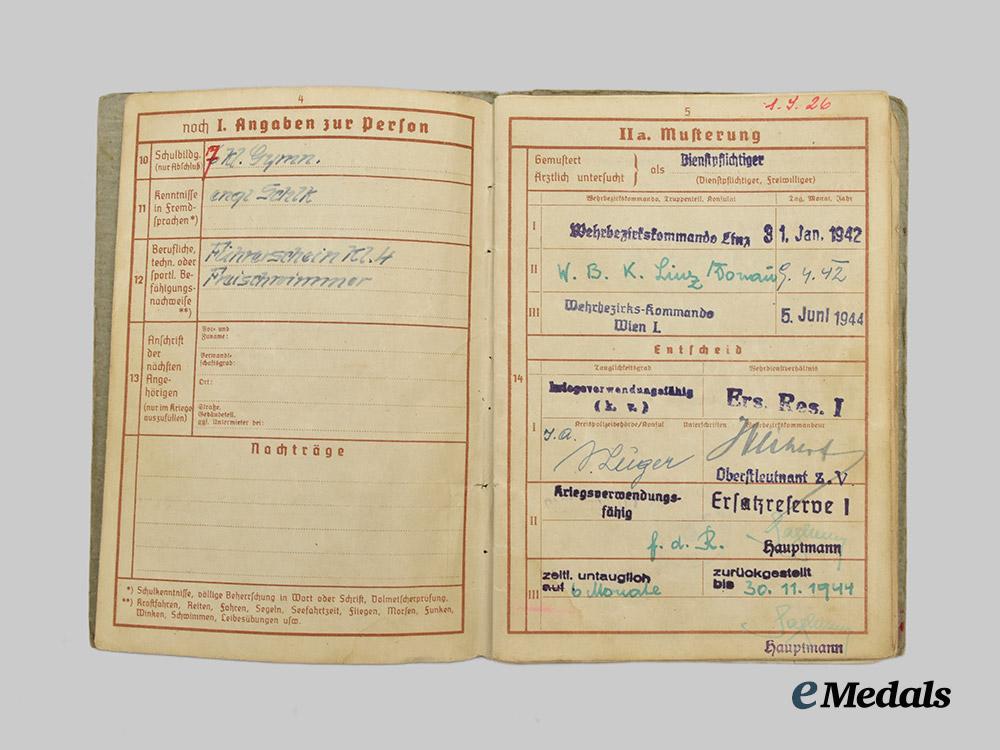 4
noch I. Angaben zur Person
10 Schulbildg. (nur Abschluß)
7 Kl. Gymn.
11 Kenntnisse in Fremdsprachen*)
engl Schlk
12 Berufliche, techn. oder sportl. Befähigungsnachweise **)
Führerschein Kl. 4
Freischwimmer
13 Anschrift der nächsten Angehörigen (nur im Kriege auszufüllen)
Vor- und Zuname:
Verwandtschaftsgrad:
Ort:
Straße, Gebäudeteil, ggf. Untermieter bei:
Nachträge
*) Schulkenntnisse, völlige Beherrschung in Wort oder Schrift, Dolmetscherprüfung.
**) Kraftfahren, Reiten, Fahren, Segeln, Seefahrtzeit, Fliegen, Morsen, Funken,
Winken, Schwimmen, Leibesübungen usw.
5
1. 9. 26
IIa. Musterung
Gemustert
Ärztlich untersucht } als
Dienstpflichtiger
(Dienstpflichtiger, Freiwilliger)
Wehrbezirkskommando, Truppenteil, Konsulat
Tag, Monat, Jahr
I Wehrbezirkskommando Linz 31. Jan. 1942
II W. B. K. Linz/Donau 9. 4. 42
III Wehrbezirks-Kommando
Wien I. 5. Juni 1944
Entscheid
14
Tauglichkeitsgrad
Wehrdienstverhältnis
kriegsverwendungsfähig
(k. v.)
Ers. Res. I
I
Kreispolizeibehörde/Konsul Unterschriften Wehrbezirkskommandeur
J.A.
Oberstleutnant z. V.
II Kriegsverwendungs-
fähig
Ersatzreserve I
f. d. R.
Hauptmann
III zeitl. untauglich
auf 6 Monate
zurückgestellt
bis 30. 11. 1944
Hauptmann
eMedals